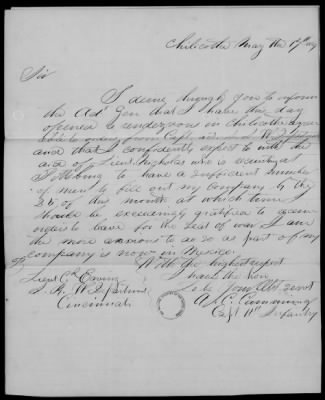 Chilicothe May the 17th 1847
Sir
I desire through you to inform
the Adj Gen that I have this day
opened a rendezvous in Chilicothe agree
able to orders from Capt
and that I confidently expect with the
aid of Lieut who is recruiting at
to have a sufficient number
of men to fill out my company by the
26 of this month at which time I
should be exceedingly gratified to receive
orders to leave for the seat of war I am
the more anxious to do so as part of my
company is now in Mexico
With the highest respect
I have the honor
to be your obt servt
A C Cummings
Capt 11th Infantry
Lieut Ewing
Cincinnati